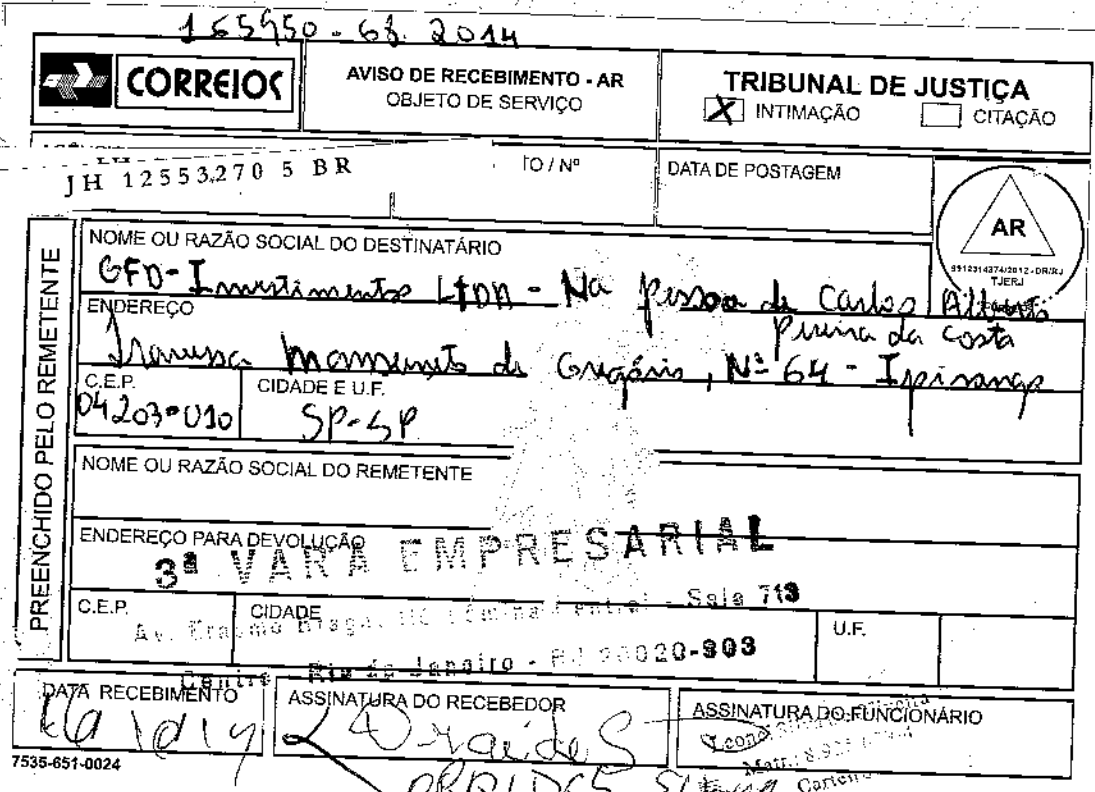 165950-68.2014
CORREIOS
AVISO DE RECEBIMENTO - AR
OBJETO DE SERVIÇO
TRIBUNAL DE JUSTIÇA
X INTIMAÇÃO CITAÇÃO
JH 12553270 5 BR
TO / Nº
DATA DE POSTAGEM
AR
9912314374/2012 - DR/RJ
TJERJ
PREENCHIDO PELO REMETENTE
NOME OU RAZÃO SOCIAL DO DESTINATÁRIO
GFD-Investimentos LTDA - Na pessoa de Carlos Alberto
Pereira da Costa
ENDEREÇO
Travessa de Gregório, Nº 64 - Ipiranga
C.E.P.
04203-010
CIDADE E U.F.
SP-SP
NOME OU RAZÃO SOCIAL DO REMETENTE
ENDEREÇO PARA DEVOLUÇÃO
3ª VARA EMPRESARIAL
C.E.P.
CIDADE
U.F.
Av. Erasmo Braga, Lâmina Central - Sala 713
Centro Rio de Janeiro - RJ 20020-903
DATA RECEBIMENTO
ASSINATURA DO RECEBEDOR
ASSINATURA DO FUNCIONÁRIO
Matr.: 8.925
Carteiro
7535-651-0024